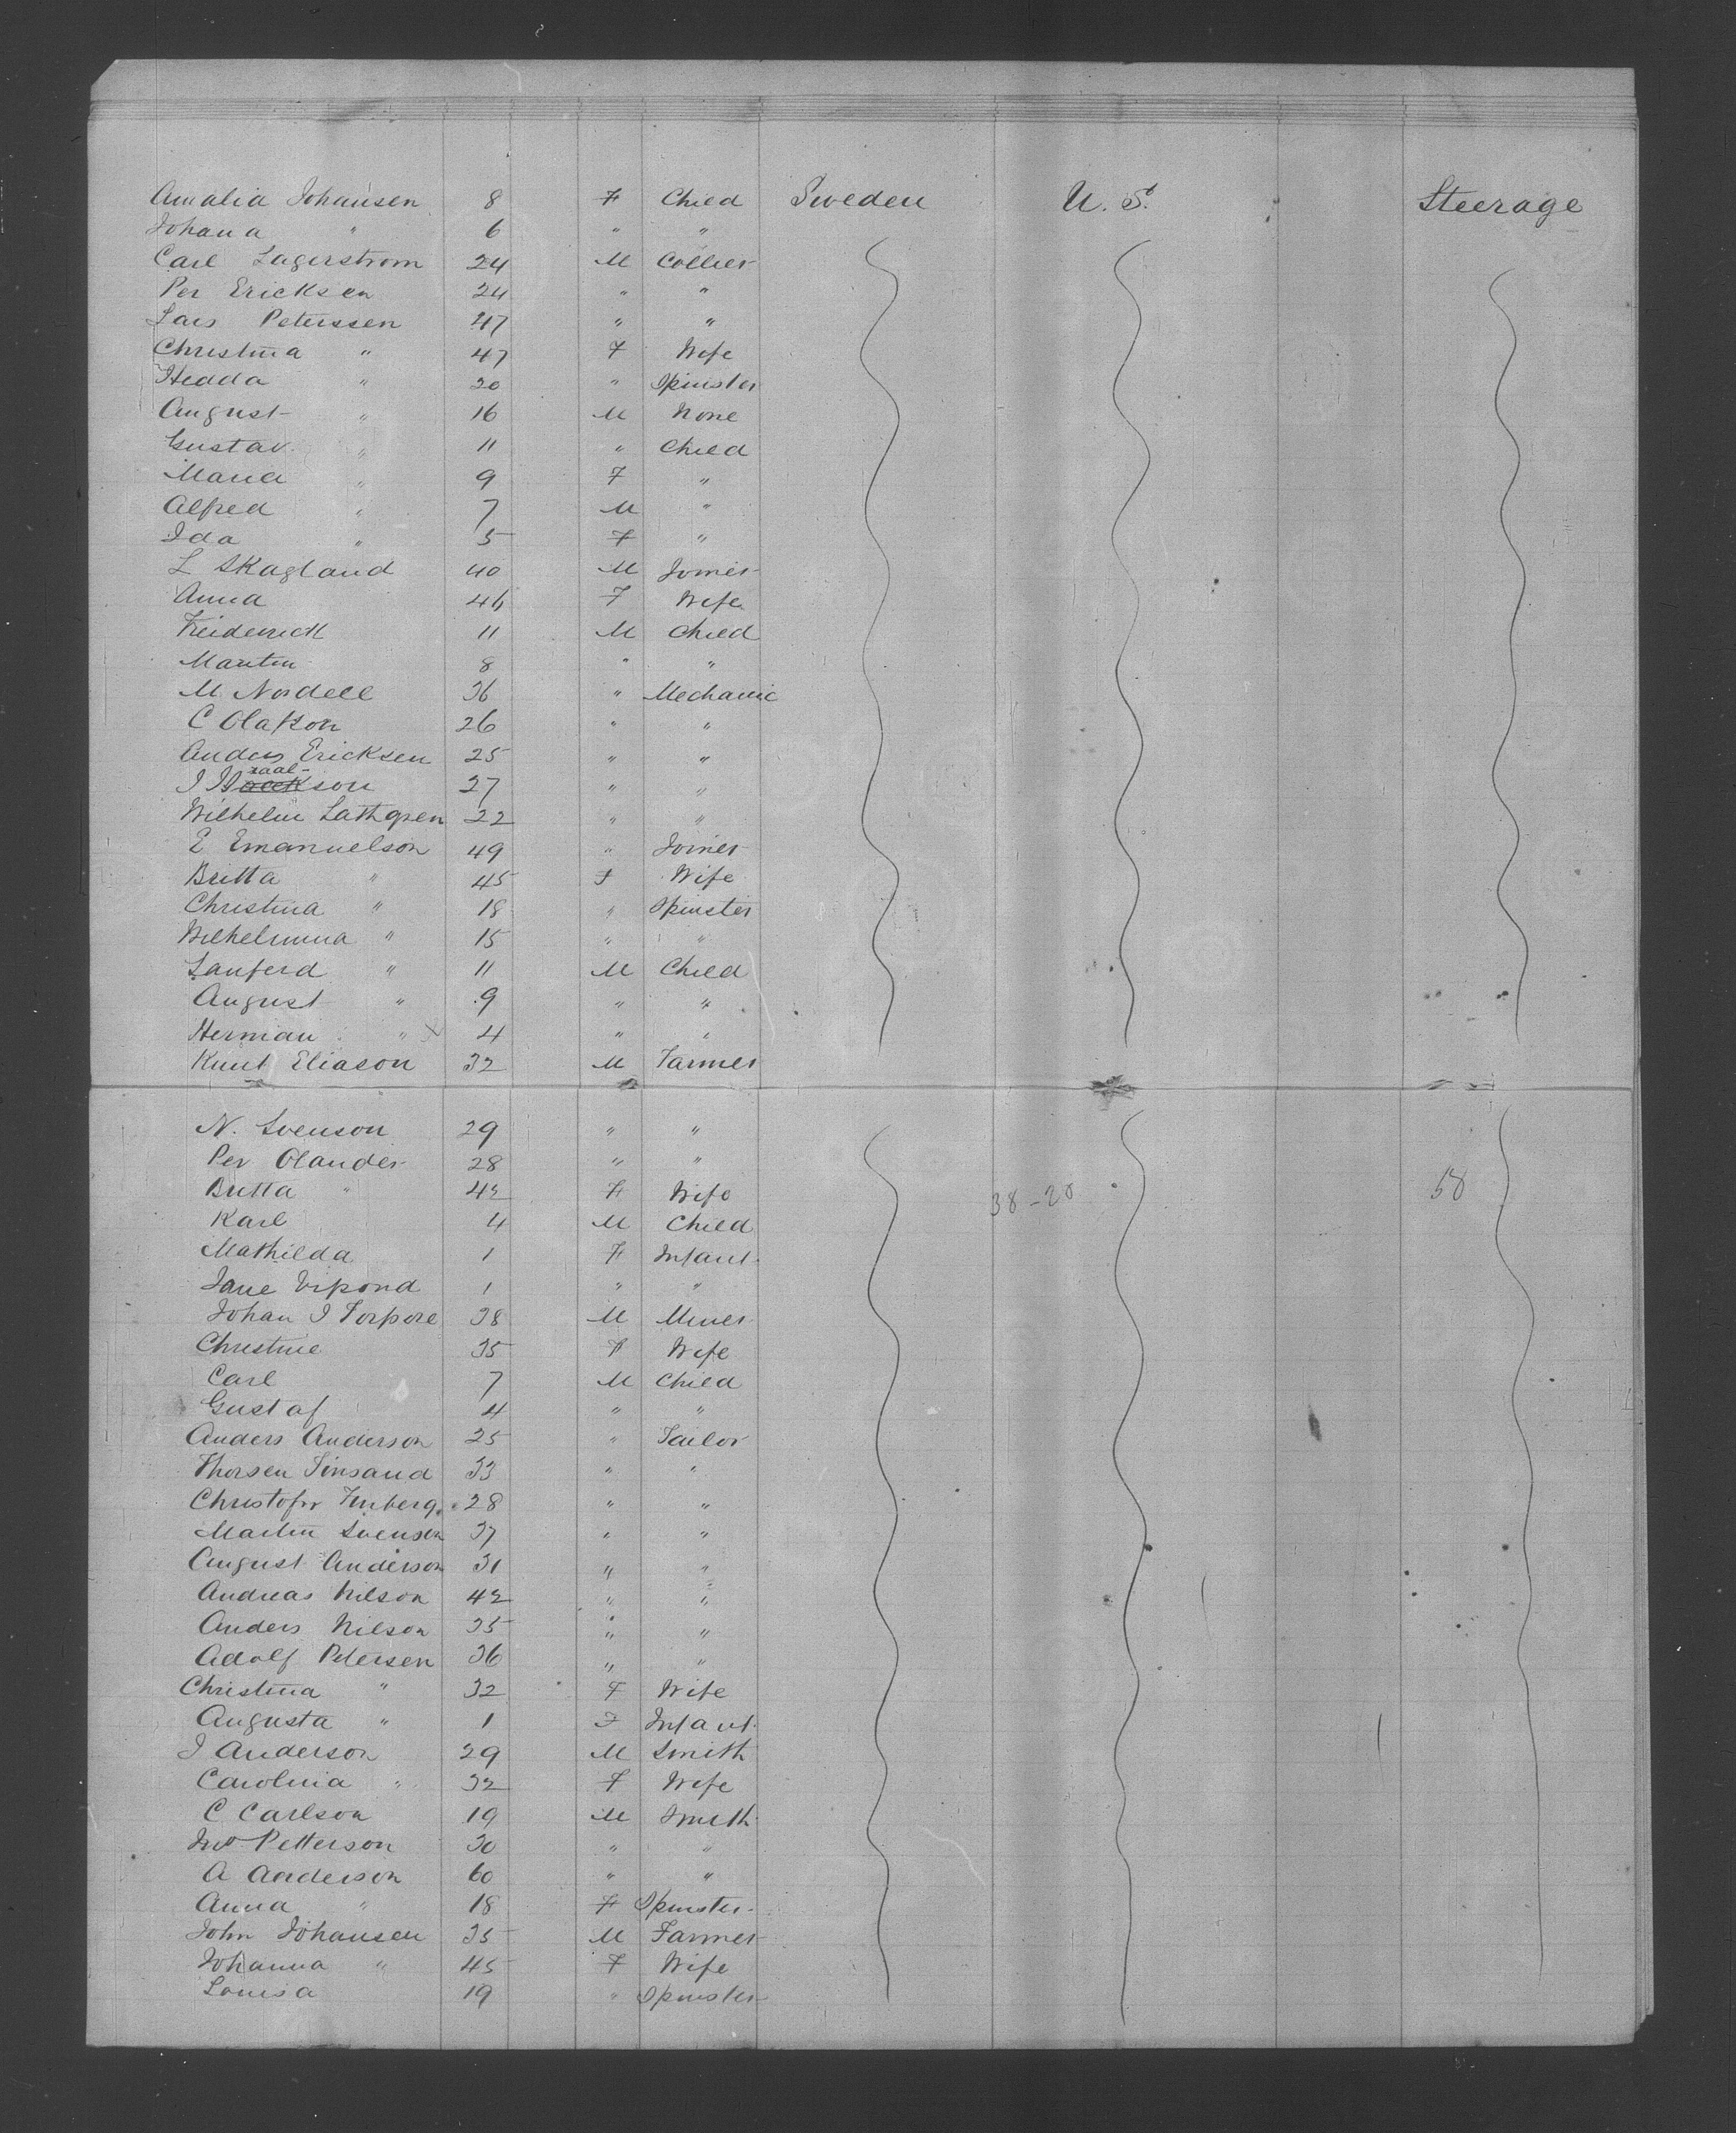 Amalia Johansen 8 F Child Sweden U. S. Steerage
Johana " 6 " "
Carl Lagerstrom 24 M Collier
Per Ericksen 24 " "
Lars Peterssen 47 " "
Christina " 47 F Wife
Hedda " 20 " Spinster
August " 16 M None
Gustav " 11 " Child
Maria " 9 F "
Alfred " 7 M "
Ida " 5 F "
L Skagland 40 M Joiner
Anna 46 F Wife
Freiderick 11 M Child
Martin 8 " "
M Nordell 36 " Mechanic
C Olafson 26 " "
Anders Ericksen 25 " "
raal-
27 " "
Wilhelm Lathgren 22 " "
E Emanuelson 49 " Joiner
Britta " 45 F Wife
Christina " 18 " Spinster
Wilhelmina " 15 " "
Lanferd " 11 M Child
August " 9 " "
Herman " 4 " "
Knut Eliason 32 M Farmer
N. Svenson 29 " "
Per Olander 28 " "
Britta " 42 F Wife 38-28 58
Karl 4 M Child
Mathilda 1 F Infant
Jane Vipond 1 " "
Johan J 38 M Miner
Christine 35 F Wife
Carl 7 M Child
Gustaf 4 " "
Anders Anderson 25 " Tailor
Thorsen Sinsand 33 " "
28 " "
Martin Svenson 37 " "
August Anderson 31 " "
Andreas Nilson 42 " "
Anders Nilson 35 " "
Adolf Petersen 36 " "
Christina " 32 F Wife
Augusta " 1 F Infant
J Anderson 29 M Smith
Carolina " 32 F Wife
C Carlson 19 M Smith
Jno Petterson 30 " "
A Anderson 60 " "
Anna " 18 F Spinster
John Johansen 35 M Farmer
Johanna " 45 F Wife
Louisa 19 " Spinster